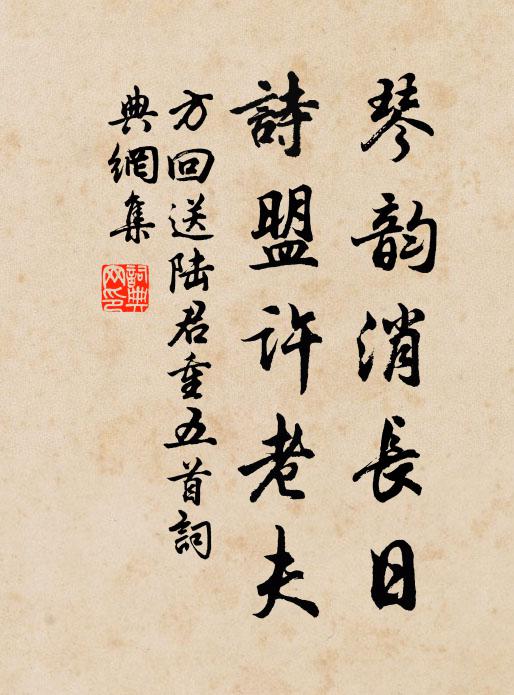 琴韵消長日
詩盟許老夫
方回送陆君重五首詞
典網集
詞典
网印